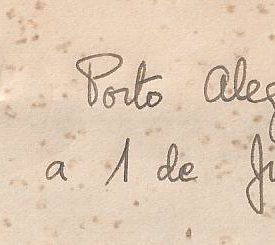 Porto Aleg
a 1 de Ju